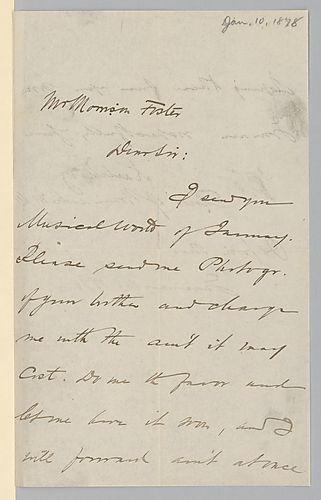 Jan. 10, 1878
Mr Morrison Foster
Dear Sir:
I send you
Musical World of January.
Please send me Photogr.
of your brother and charge
me with the am't it may
cost. Do me the favor and
let me have it soon, and I
will forward am't at once